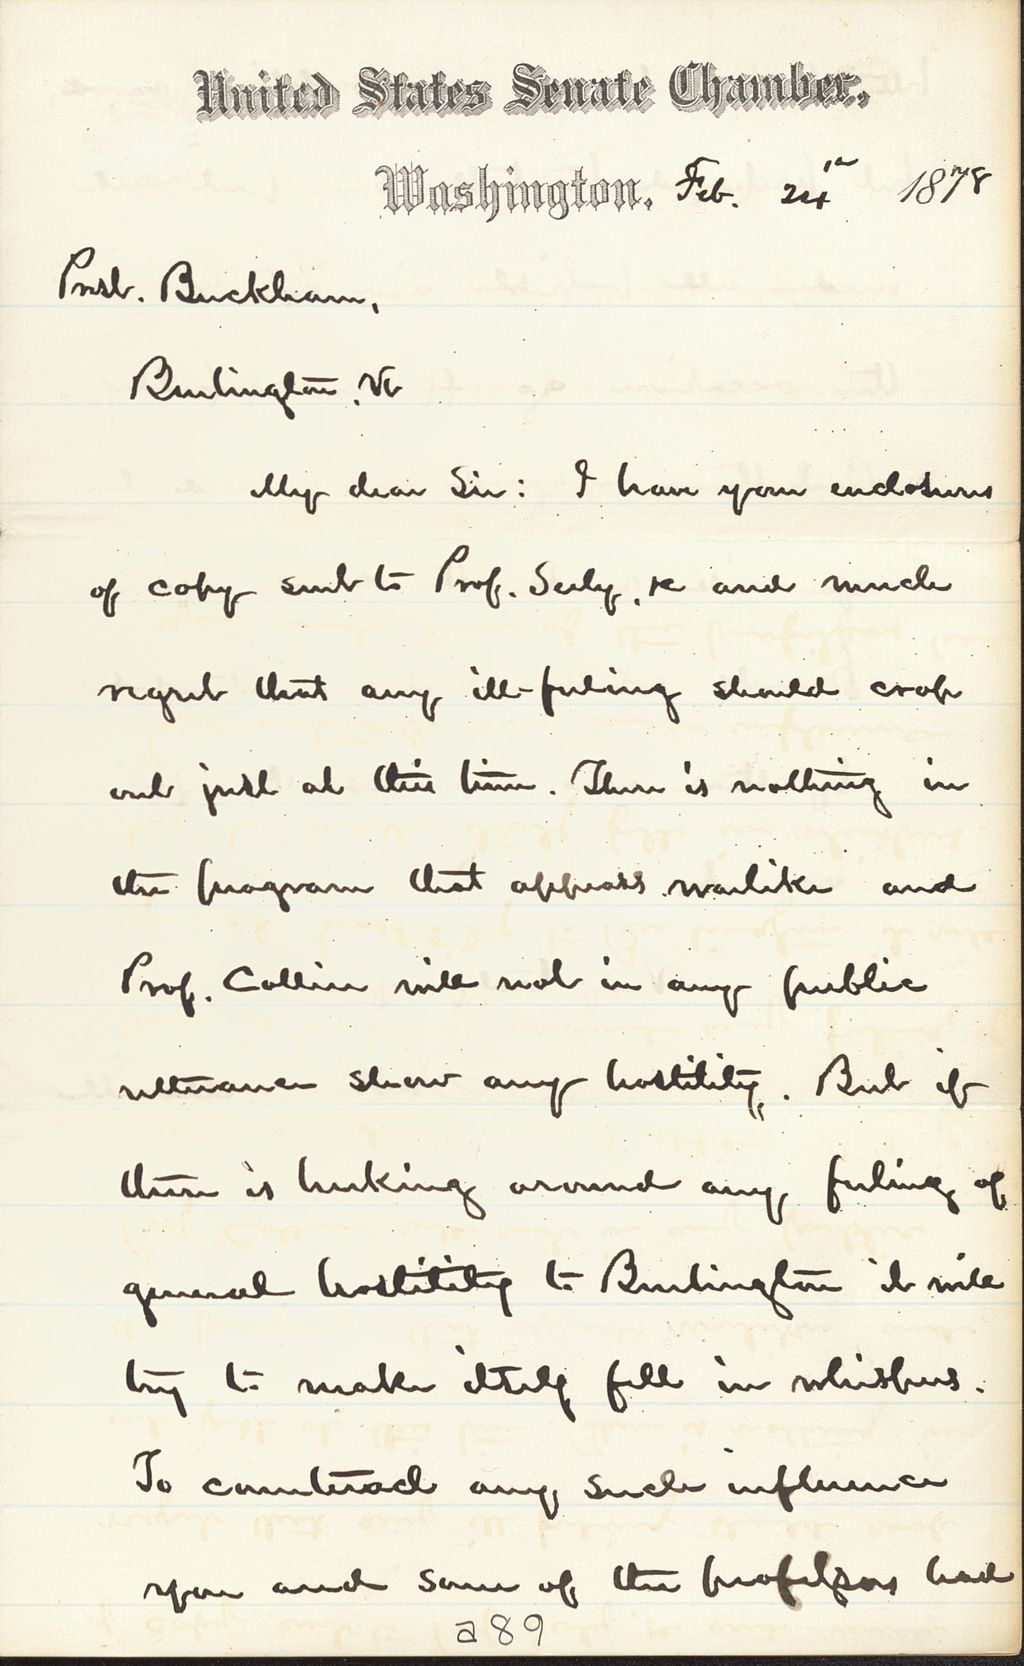 United States Senate Chamber,
Washington, Feb. 24th 1878
Prest. Buckham,
Burlington, Vt
My dear Sir: I have your enclosures
of copy sent to Prof. Seely, &c and much
regret that any ill-feeling should crop
out just at this time. There is nothing in
the program that appears warlike and
Prof. Collier will not in any public
utterance show any hostility. But if
there is lurking around any feeling of
general hostility to Burlington it will
try to make itself felt in whispers.
To counteract any such influence
you and some of the professors had
a89